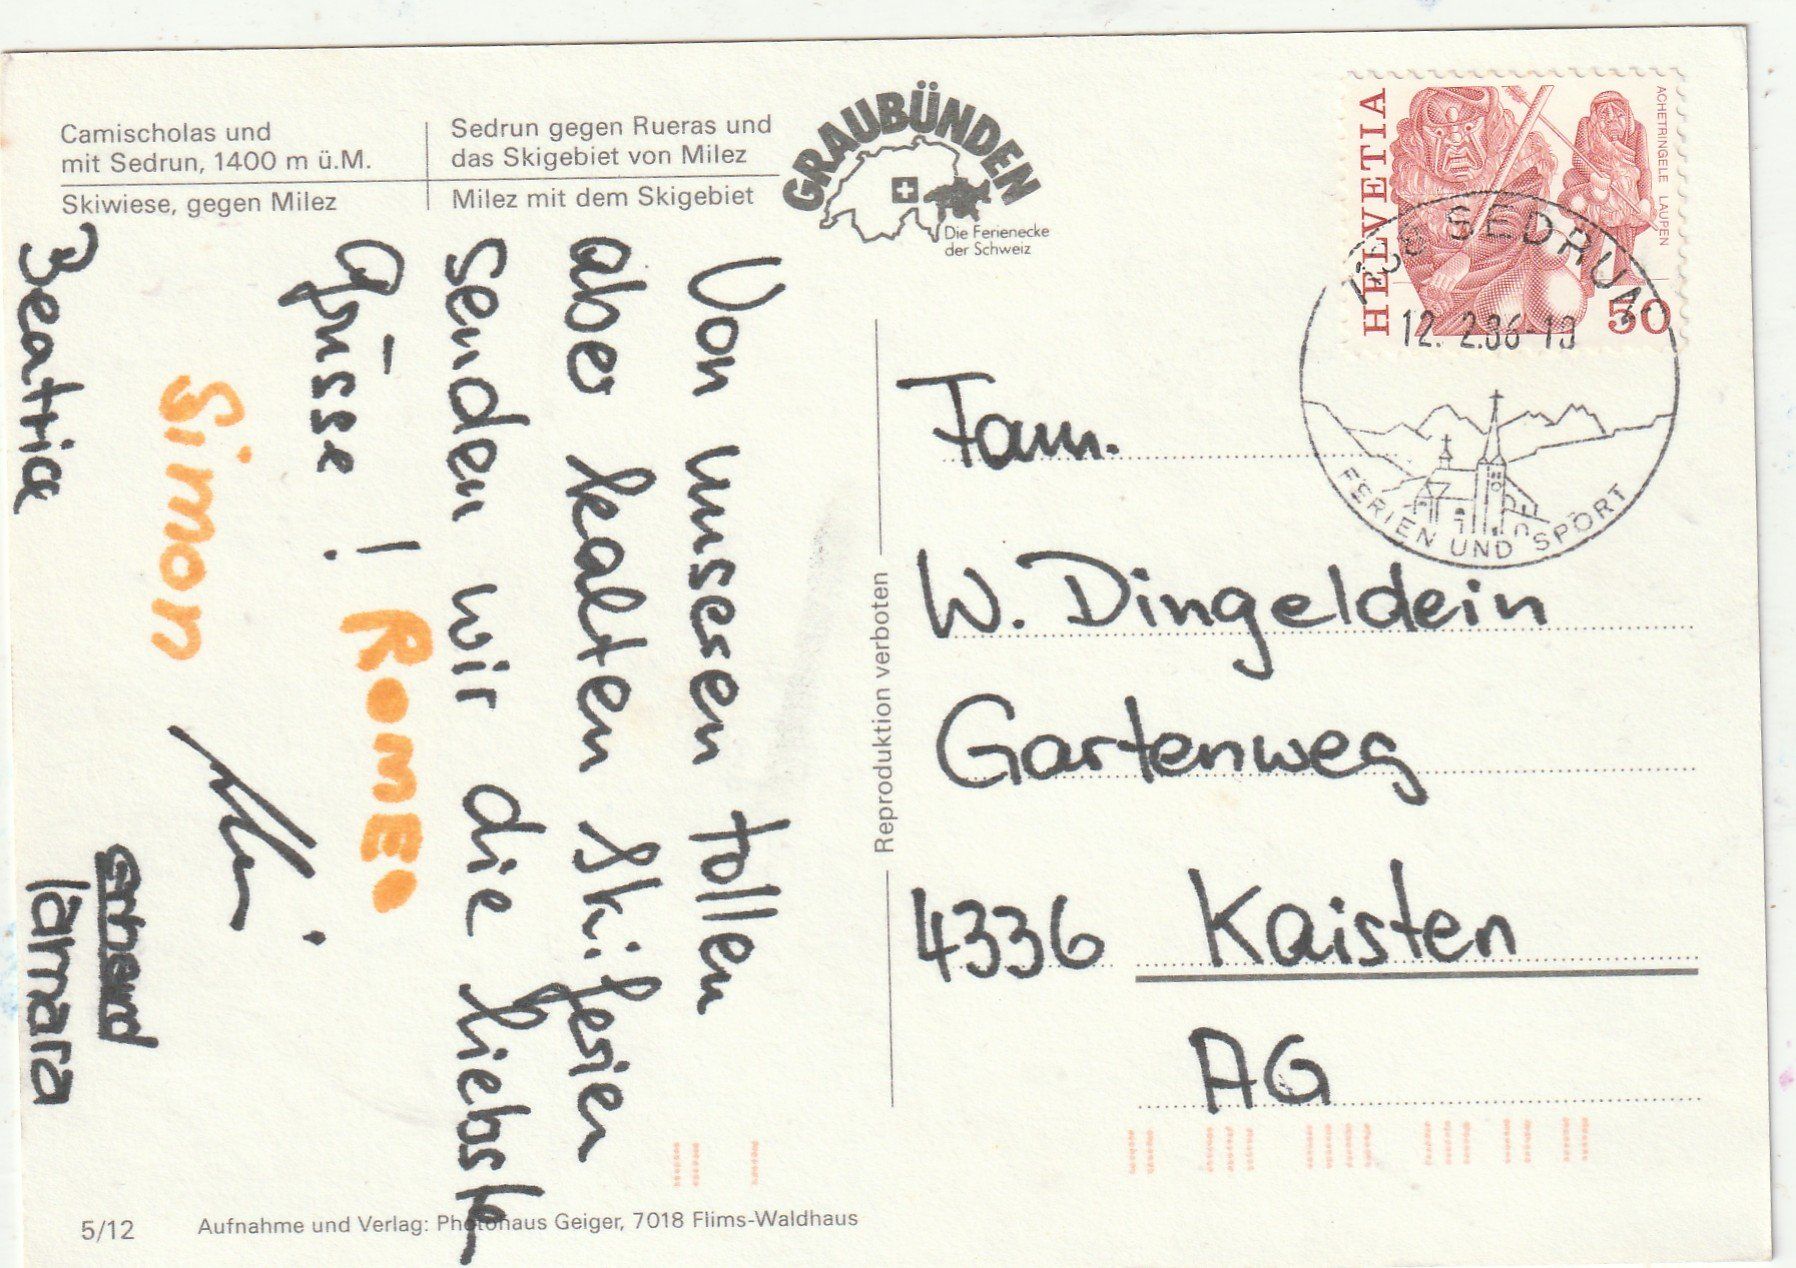 Camischolas und
mit Sedrun, 1400 m ü.M.
Sedrun gegen Rueras und
das Skigebiet von Milez
Skiwiese, gegen Milez
Milez mit dem Skigebiet
GRAUBÜNDEN
Die Ferienecke
der Schweiz
HELVETIA
ACHETRINGELE LAUPEN
50
SEDRUN
12. 2.86-19
FERIEN UND SPORT
Von unseren tollen
aber kalten Skiferien
senden wir die liebste
Grüsse!
ROMEO
Simon
Beatrice
Tamara
Reproduktion verboten
Fam.
W. Dingeldein
Gartenweg
4336 Kaisten
AG
5/12
Aufnahme und Verlag: Photohaus Geiger, 7018 Flims-Waldhaus